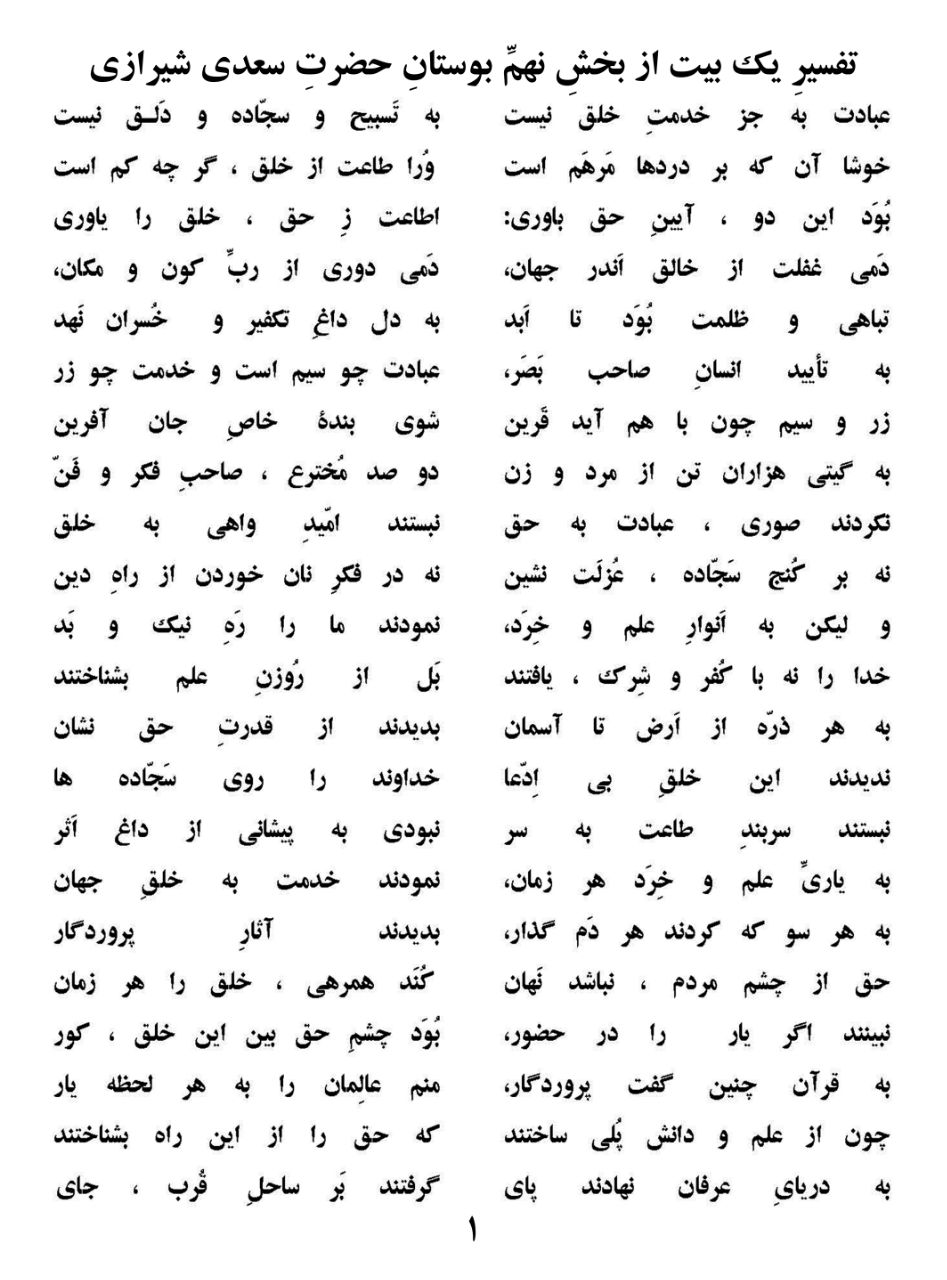 تفسیرِ یک بیت از بخشِ نهمِّ بوستانِ حضرتِ سعدی شیرازی
عبادت به جز خدمتِ خلق نیست به تَسبیح و سجّاده و دَلـق نیست
خوشا آن که بر دردها مَرهَم است وُرا طاعت از خلق ، گر چه کم است
بُوَد این دو ، آیینِ حق باوری: اطاعت زِ حق ، خلق را یاوری
دَمی غفلت از خالق اَندر جهان، دَمی دوری از ربِّ کون و مکان،
تباهی و ظلمت بُوَد تا اَبد به دل داغِ تکفیر و خُسران نَهد
به تأیید انسانِ صاحب بَصَر، عبادت چو سیم است و خدمت چو زر
زر و سیم چون با هم آید قَرین شوی بندهٔ خاصِ جان آفرین
به گیتی هزاران تن از مرد و زن دو صد مُخترع ، صاحبِ فکر و فَنّ
نکردند صوری ، عبادت به حق نبستند امّیدِ واهی به خلق
نه بر کُنج سَجّاده ، عُزلَت نشین نه در فکرِ نان خوردن از راهِ دین
و لیکن به اَنوارِ علم و خِرَد، نمودند ما را رَهِ نیک و بَد
خدا را نه با کُفر و شِرک ، یافتند بَل از رُوزنِ علم بشناختند
به هر ذرّه از اَرض تا آسمان بدیدند از قدرتِ حق نشان
ندیدند این خلقِ بی اِدّعا خداوند را روی سَجّاده ها
نبستند سربندِ طاعت به سر نبودی به پیشانی از داغ اَثر
به یاریِّ علم و خِرَد هر زمان، نمودند خدمت به خلقِ جهان
به هر سو که کردند هر دَم گذار، بدیدند آثارِ پروردگار
حق از چشم مردم ، نباشد نَهان کُنَد همرهی ، خلق را هر زمان
نبینند اگر یار را در حضور، بُوَد چشمِ حق بین این خلق ، کور
به قرآن چنین گفت پروردگار، منم عالِمان را به هر لحظه یار
چون از علم و دانش پُلی ساختند که حق را از این راه بشناختند
به دریایِ عرفان نهادند پای گرفتند بَر ساحلِ قُرب ، جای
۱